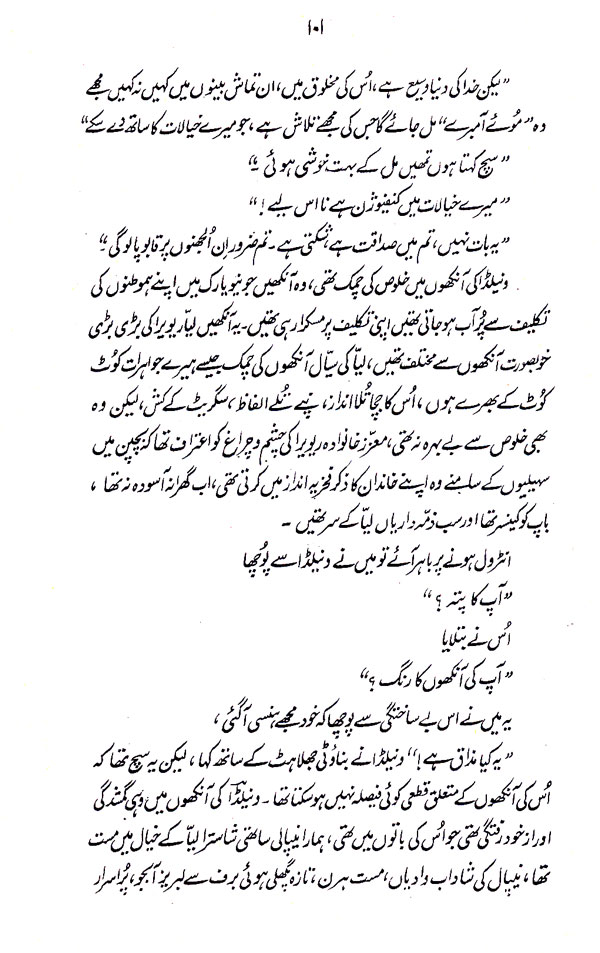 ۱۰۱
”لیکن خدا کی دنیا وسیع ہے، اُس کی مخلوق میں، ان تماش بینوں میں کہیں نہ کہیں مجھے
وہ ”مُوئے آمبرے“ مل جائے گا جس کی مجھے تلاش ہے، جو میرے خیالات کا ساتھ دے سکے“
”سچ کہتا ہوں تمھیں مل کے بہت خوشی ہوئی۔“
”میرے خیالات میں کنفیوژن ہے نا اس لیے!“
”یہ بات نہیں، تم میں صداقت ہے، شکتی ہے۔ تم ضرور ان اُلجھنوں پر قابو پا لو گی۔“
ونیلڈا کی آنکھوں میں خلوص کی چمک تھی، وہ آنکھیں جو نیو یارک میں اپنے ہموطنوں کی
تکلیف سے پُر آب ہو جاتی تھیں اپنی تکلیف پر مسکرا رہی تھیں۔ یہ آنکھیں لیا ریویرا کی بڑی بڑی
خوبصورت آنکھوں سے مختلف تھیں، لیا کی سیّال آنکھوں کی چمک جیسے ہیرے جواہرات کوٹ
کوٹ کے بھرے ہوں، اُس کا جچا تُلا انداز، نپے تُلے الفاظ، سگریٹ کے کش، لیکن وہ
بھی خلوص سے بے بہرہ نہ تھی، معزز خانوادہ ریویرا کی چشم و چراغ کو اعتراف تھا کہ بچپن میں
سہیلیوں کے سامنے وہ اپنے خاندان کا ذکر فخریہ انداز میں کرتی تھی، اب گھرانہ آسودہ نہ تھا،
باپ کو کینسر تھا اور سب ذمّہ داریاں لیا کے سر تھیں۔
انٹرول ہونے پر باہر آئے تو میں نے ونیلڈا سے پُوچھا
”آپ کا پتہ؟“
اُس نے بتلایا
”آپ کی آنکھوں کا رنگ؟“
یہ میں نے اس بے ساختگی سے پوچھا کہ خود مجھے ہنسی آ گئی،
”یہ کیا مذاق ہے!“ ونیلڈا نے بناوٹی جھلاہٹ کے ساتھ کہا، لیکن یہ سچ تھا کہ
اُس کی آنکھوں کے متعلق قطعی کوئی فیصلہ نہیں ہو سکتا تھا۔ ونیلڈا کی آنکھوں میں وہی گمشدگی
اور از خود رفتگی تھی جو اُس کی باتوں میں تھی، ہمارا نیپالی ساتھی شاسترا لیا کے خیال میں مست
تھا، نیپال کی شاداب وادیاں، مست ہرن، تازہ پگھلی ہوئی برف سے لبریز آبجو، پُر اسرار